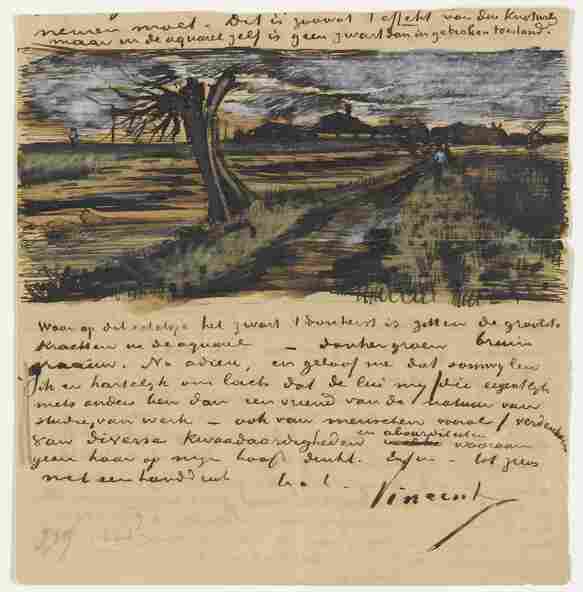 nemen moet. Dit is zoowat 't effekt van den Knotwilg
maar in de aquarel zelf is geen zwart dan in gebroken toestand.
Waar op dit schetsje het zwart 't donkerst is zitten de grootste
krachten in de aquarel – donkergroen bruin
graauw. Nu adieu, en geloof me dat somwijlen
ik er hartelijk om lach dat de lui mij (die eigentlijk
niets anders ben dan een vriend van de natuur van
studie, van werk – ook van menschen vooral) verdenken
van diverse kwaadaardigheden en absurditeiten waaraan
geen haar op mijn hoofd denkt. Enfin – tot ziens
met een handdruk
Vincent